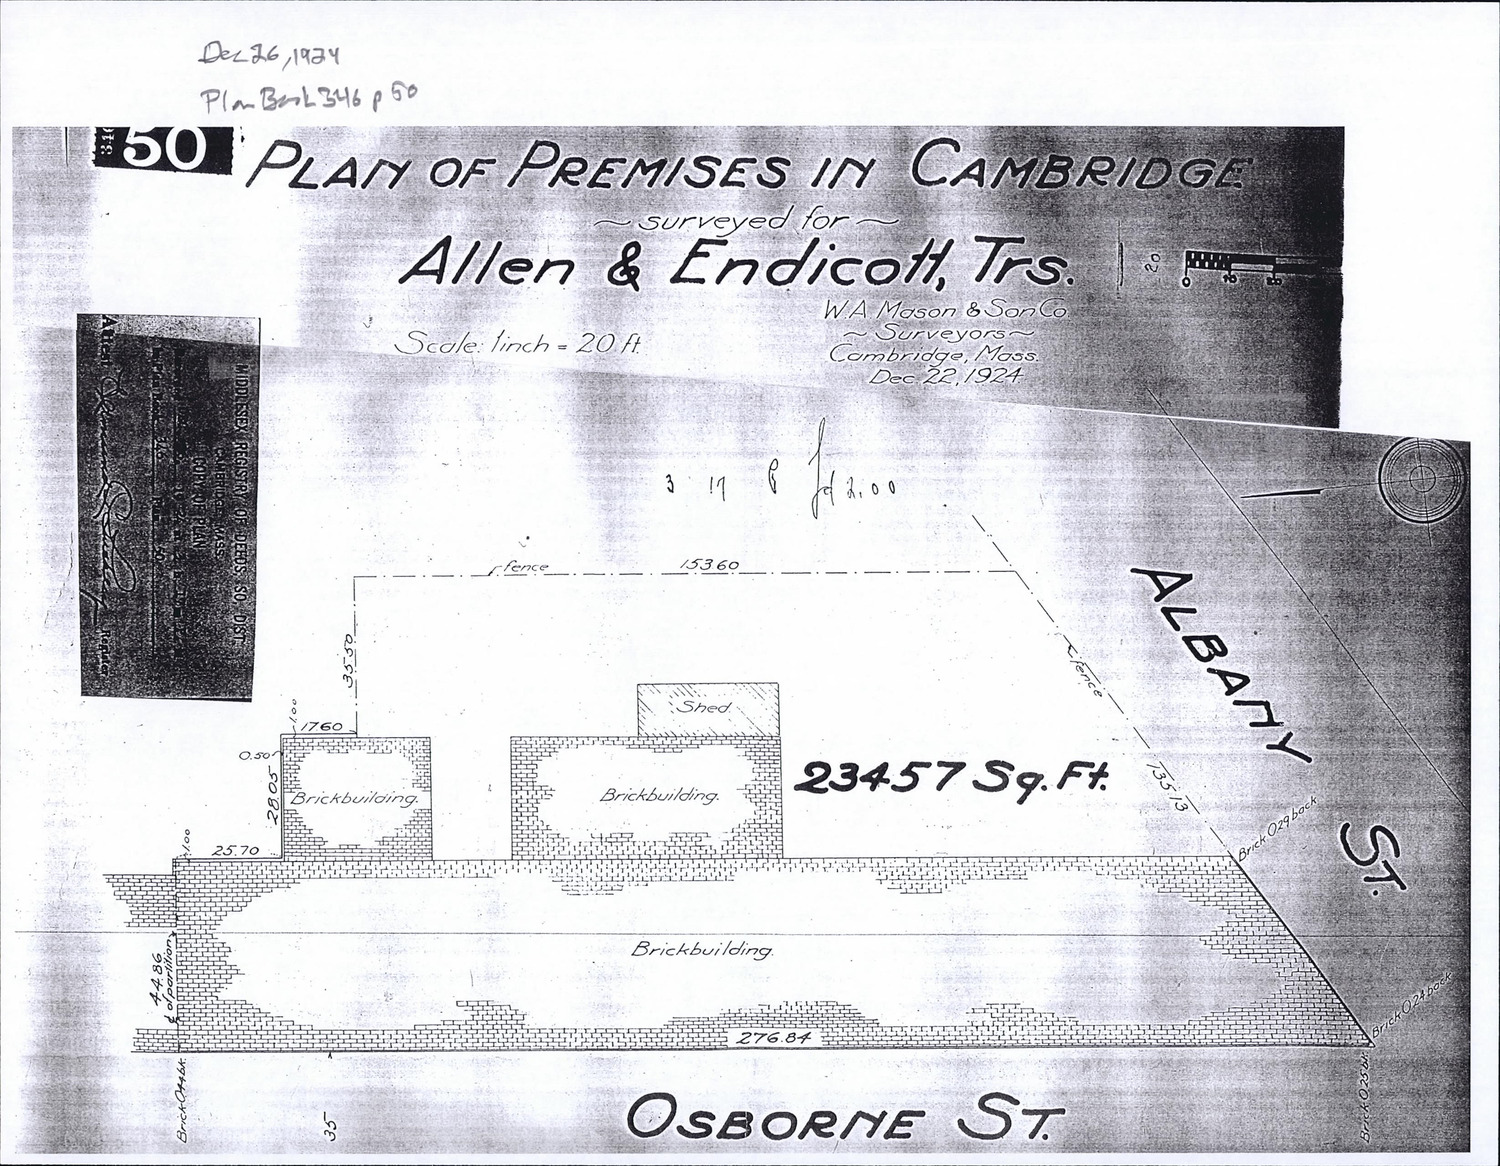 Dec 26, 1924
Plan Book 346 p 50
346
50
PLAN OF PREMISES IN CAMBRIDGE
~ surveyed for ~
Allen & Endicott, Trs.
20
0
W.A. Mason & Son Co.
~ Surveyors ~
Cambridge, Mass.
Dec. 22, 1924
Scale: 1 inch = 20 ft.
MIDDLESEX REGISTRY OF DEEDS, SO. DIST.
CAMBRIDGE, MASS.
COPY OF PLAN
Attest
Register
3 17 P
2.00
fence
153.60
35.50
fence
ALBANY ST.
135.13
1.00
17.60
0.50
28.05
Shed.
Brickbuilding.
Brickbuilding.
23457 Sq. Ft.
1.00
25.70
Brick 0.29 back
44.86
¢ of partition
Brickbuilding.
276.84
Brick 0.24 back
Brick 0.44 bk.
35
Brick 0.25 bk.
OSBORNE ST.